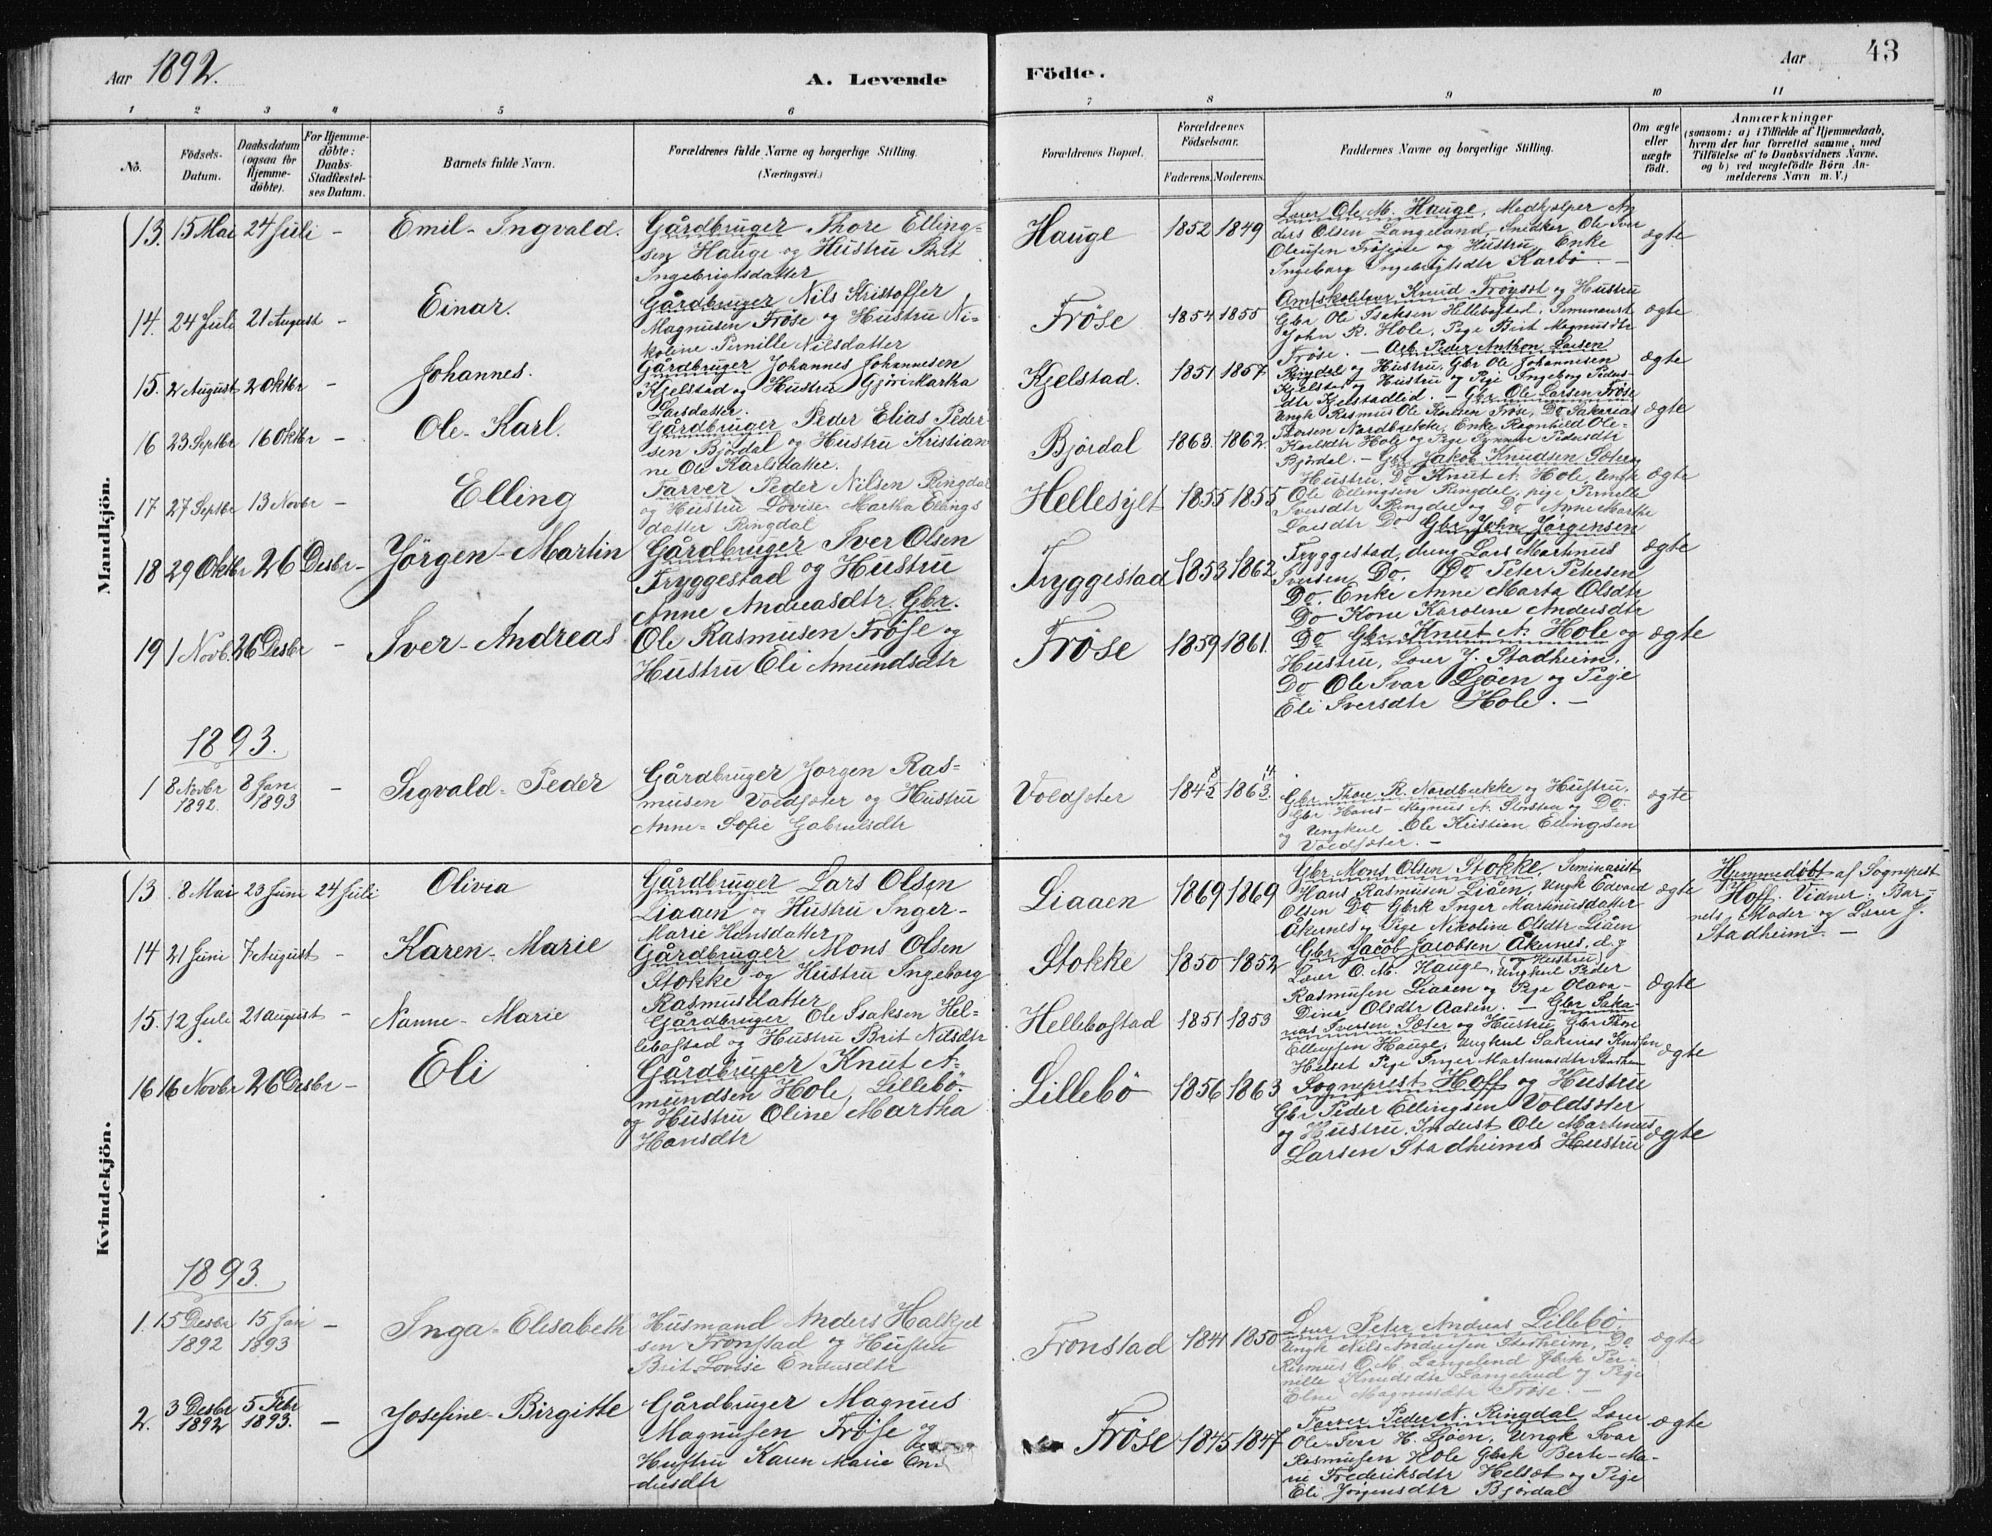 Aar 1892.
A. Levende
Födte.
Aar
43
1 2 3 4 5 6 7 8 9 10 11
No.
Födsels-
Datum.
Daabsdatum
(ogsaa for
Hjemme-
döbte).
For Hjemme-
döbte:
Daabs-
Stadfæstel-
ses Datum.
Barnets fulde Navn.
Forældrenes fulde Navne og borgerlige Stilling.
(Næringsvei.)
Forældrenes Bopæl.
Forældrenes
Födselsaar.
Faderens. Moderens.
Faddernes Navne og borgerlige Stilling.
Om ægte
eller
uægte
födt.
Anmærkninger
(saasom: a) i Tilfælde af Hjemmedaab,
hvem der har forrettet samme, med
Tilföielse af to Daabsvidners Navne,
og b) ved uægtefödte Börn An-
melderens Navn m. V.)
Mandkjön.
13. 15 Mai 24 Juli - Emil-Ingvald.
Gårdbruger Thore Elling-
sen Hauge og Hustru Brit
Ingebrigtsdatter
Hauge 1852 1849
Lærer Ole M. Hauge, Medhjælper An-
ders Olsen Langeland, Snedker Ole Iver
Olausen Frøisøe og Hustru, Enke
Ingeborg Ingebrigtsdtr Karbö -
ægte
14. 24 Juli 21 August - Einar.
Gårdbruger Nils Kristoffer
Magnusen Fröse og Hustru Ni-
koline Pernille Nilsdatter
Fröse 1854 1855
Amtskolelærer Knud Fröysæt og Hustru
Gbr Ole Isaksen Hellebostad, Seminarist
John R. Hole, Pige Brit Magnusdtr
Fröse. -
ægte
15. 2 August 2 Oktbr - Johannes.
Gårdbruger Johannes Johannesen
Kjelstad og Hustru Gjöri Martha
Larsdatter.
Kjelstad. 1851 1857
Arb. Peder Anthon Larsen
Ringdal og Hustru, Gbr Ole Johannesen
Kjelstad og Hustru og Pige Ingeborg Peders-
dtr Kjelstadlid. -
ægte
16 23 Septbr 16 Oktbr - Ole-Karl.
Gårdbruger Peder Elias Peder-
sen Björdal og Hustru Kristian-
ne Ole Karlsdatter.
Björdal 1863. 1862.
Gbr Ole Larsen Fröse
Ungk Rasmus Ole Knutsen Fröse, Do Sakarias
Thorsen Nordbække, Enke Ragnhild Ole-
Karlsdtr Hole og Pige Synnøve Pedersdtr
Björdal. -
ægte
17 27 Septbr 13 Novbr - Elling
Farver Peder Nilsen Ringdal
og Hustru Lovise Martha Ellings
datter Ringdal
Hellesylt 1855 1855
Gbr Jakob Knudsen Sæter og
Hustru, Do Knut A. Hole, Ungk
Ole Ellingsen Ringdal, pige Pernille
Iversdtr Ringdal og Do Anne Marthe
Larsdtr Do
ægte
18 29 Oktbr 26 Desbr - Jörgen-Martin
Gårdbruger Iver Olsen
Tryggestad og Hustru
Anne Andreasdtr.
Tryggestad 1853 1862
Gbr John Jörgensen
Tryggestad, dreng Lars Martinus
Iversen Do. Do Peter Petersen
Do. Enke Anne Marta Olsdtr
Do Kone Karoline Andersdtr
Do
ægte
19 1 Novb. 26 Desbr - Iver-Andreas
Gbr.
Ole Rasmusen Fröse og
Hustru Eli Amundsdtr
Fröse 1859 1861.
Gbr Knut A. Hole og
Hustru, Lærer J. Stadheim,
Do Ole Ivar Ljöen og Pige
Eli Iversdtr Hole. -
ægte
1893.
1 8 Novbr 1892. 8 Jan 1893 - Sigvald-Peder
Gårdbruger Jorgen Ras-
musen Voldsæter og Hustru
Anne-Sofie Gabrielsdtr
Voldsæter 1845 1863.
Gbr Thore R. Nordbække og Hustru,
Gbr Hans-Magnus N. Slorsten og Do
og Ungkarl Ole Kristian Ellingsen
Voldsæter. -
ægte
Kvindekjön.
13 8 Mai 23 Juni 24 Juli Olivia
Gårdbruger Lars Olsen
Liaaen og Hustru Inger-
Marie Hansdatter
Liaaen 1869 1869
Gbr Mons Olsen Stokke, Seminarist
Hans Rasmusen Liåen, Ungk Edvard
Olsen Do Gbrk Inger Martinusdatter
Åkernes og Pige Nikoline Olsdtr Liåen
ægte
Hjemmedöbt af Sognepst
Hoff. Vidner: Bar-
nets Moder og Lærer J.
Stadheim -
14 21 Juni 7 August - Karen-Marie
Gårdbruger Mons Olsen
Stokke og Hustru Ingeborg
Rasmusdatter
Stokke 1850 1852
Gbr Jacob Jacobsen Åkernes, d.y.
(og Hustru)
Lærer O. M. Hauge, Ungkarl Peder
Rasmusen Liaaen og Pige Olava-
Dina Olsdtr Aasen. -
ægte
15. 12 Juli 21 august - Nanne-Marie
Gårdbruger Ole Isaksen Hel-
lebostad og Hustru Brit Nilsdtr
Hellebostad 1851 1853
Gbr Saka-
rias Iversen Sæter og Hustru, Gbr Thore
Ellingsen Hauge, Ungkarl Sakarias Knutsen
Helset Pige Inger Martinusdtr
ægte
16 16 Novbr 26 Desbr - Eli
Gårdbruger Knut A-
mundsen Hole, Lillebö.
og Hustru Oline Martha
Hansdtr
Lillebö 1856 1863
Sogneprest Hoff og Hustru
Gbr Peder Ellingsen Voldsæter
og Hustru. Inderst Ole Martinus
Larsen Stadheims Hustru
ægte
1893.
1. 15 Desbr 1892 15 Jan 1893 - Inga-Elisabeth
Husmand Anders Halkjel
sen Fronstad og Hustru
Brit Lovise Endresdtr
Fronstad 1841 1850
Lærer Peter Andreas Lillebö,
Ungk Nils Andersen Stadheim, Do
Rasmus O. M. Langeland Gbrk Per-
nille Knudsdtr Langeland og Pige
Eline Magnusdtr Fröse. -
ægte
2. 3 Desbr 1892 5 Febr 1893. - Josefine-Birgitte
Gårdbruger Magnus
Magnusen Fröse og
Hustru Karen Marie En-
dresdtr
Fröse 1845 1847
Farver Peder N. Ringdal Lærer
Ole-Iver H. Ljöen, Ungk Ivar
Rasmusen Hole Gbrk Berte-Ma-
rie Frederiksdtr Helset og Pige
Eli Jörgensdtr Björdal
ægte